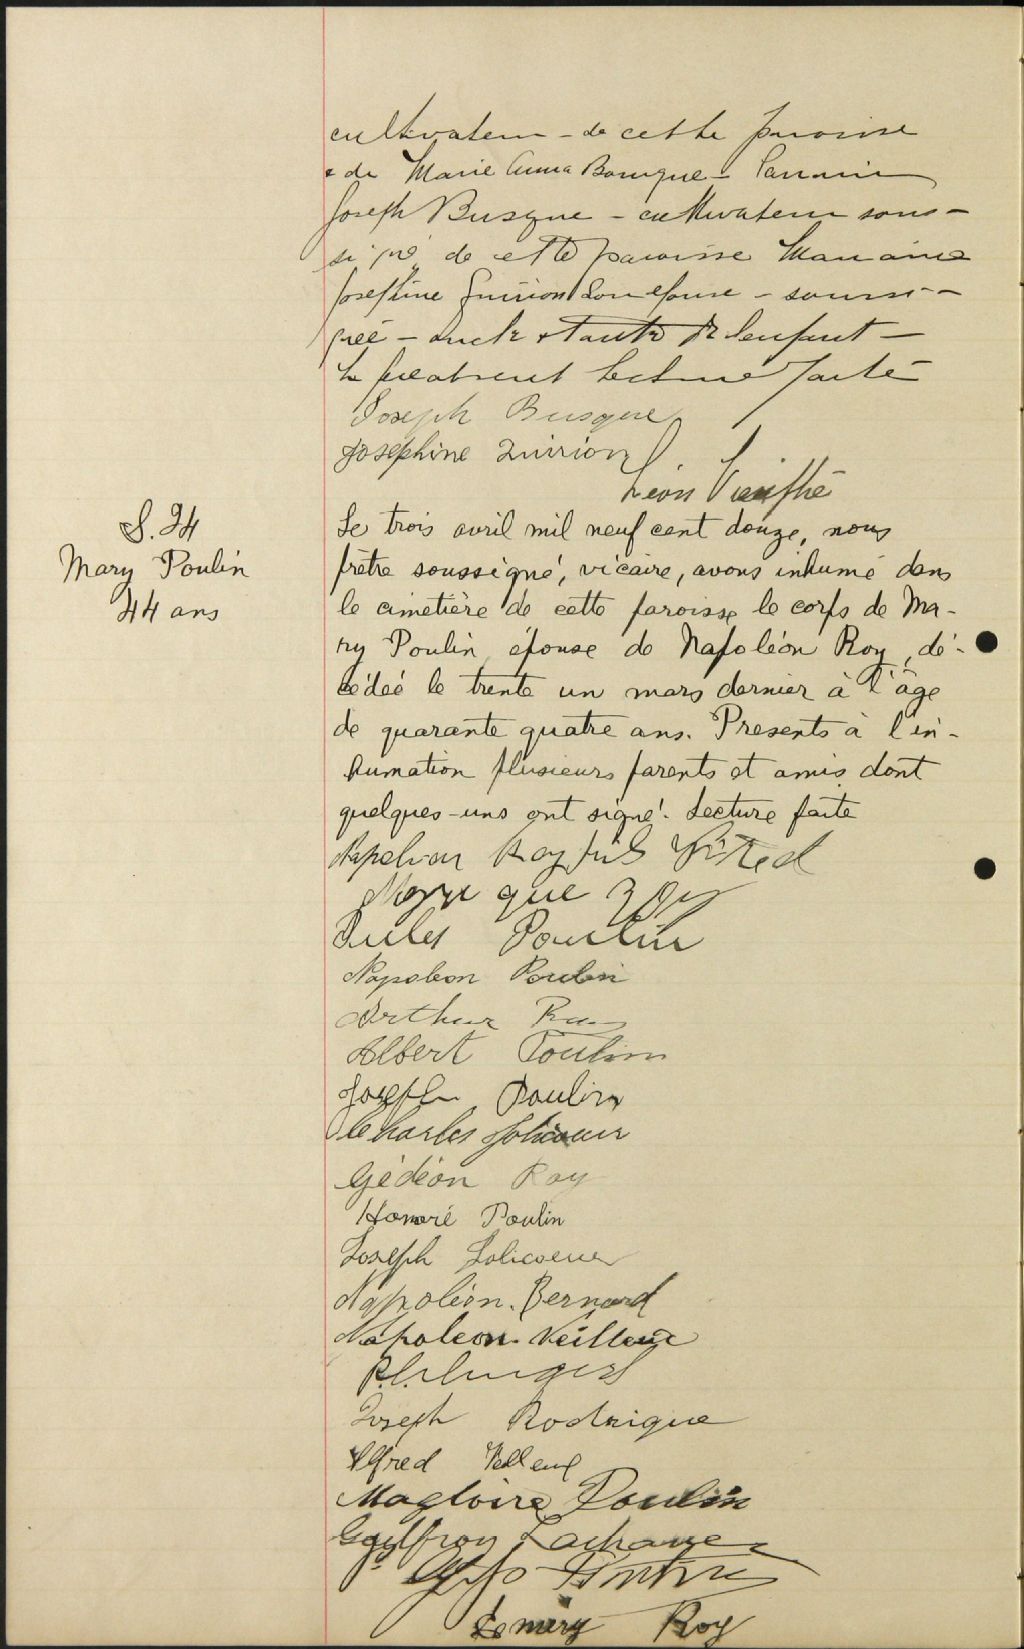 cultivateur - de cette paroisse
& de Marie Anna Bourque - Parrain
Joseph Busque - cultivateur sous-
signé de cette paroisse Marraine
Joséphine Quirion son épouse - soussi-
gnée - oncle & tante de l'enfant -
Le père absent Lecture faite
Joseph Busque
Josephine Quirion
Léon Vien ptre
S. 24
Mary Poulin
44 ans
Le trois avril mil neuf cent douze, nous
prêtre soussigné, vicaire, avons inhumé dans
le cimetière de cette paroisse le corps de Ma-
ry Poulin épouse de Napoléon Roy, dé-
cédée le trente un mars dernier à l'âge
de quarante quatre ans. Presents à l'in-
humation plusieurs parents et amis dont
quelques-uns ont signé. Lecture faite
Napoleon Roy fils
Jules Poulin
Napoleon Poulin
Arthur Roy
Albert Poulin
Joseph Poulin
Charles Jolicoeur
Gédéon Roy
Honoré Poulin
Joseph Jolicoeur
Napoléon. Bernard
Napoleon Veilleux
Joseph Rodrigue
Alfred
Magloire Poulin
Lachance
Roy